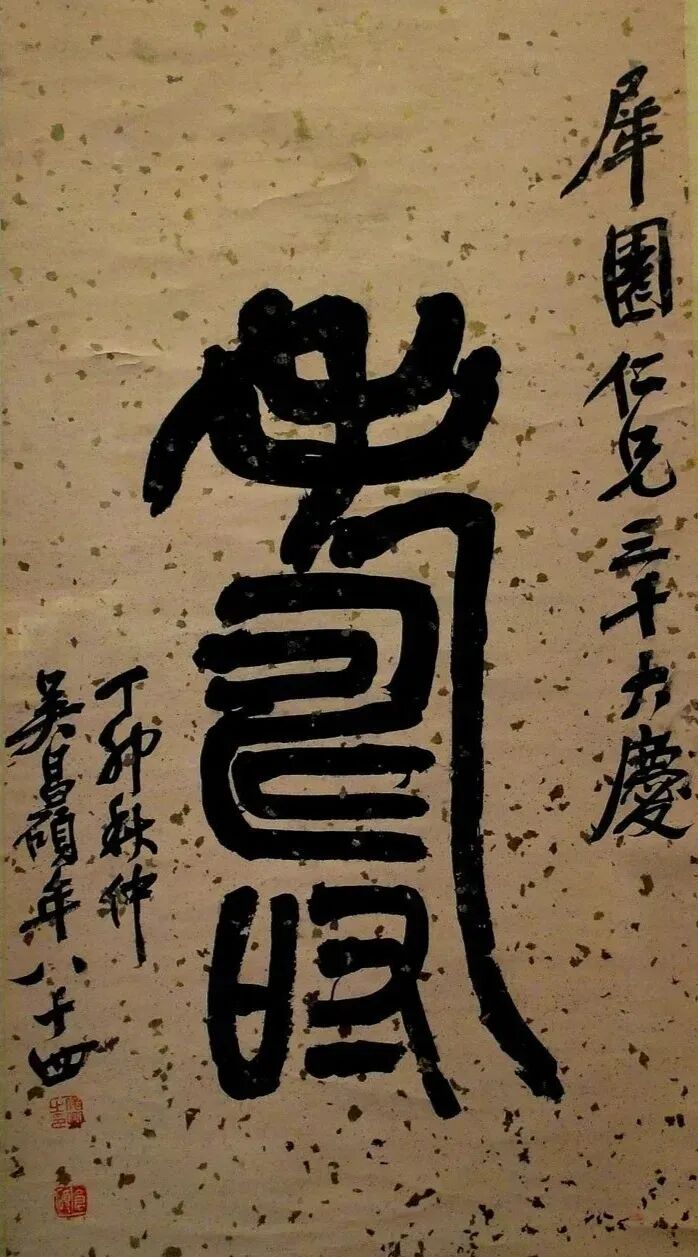 犀園仁兄三十大慶
壽
丁卯秋仲
吴昌碩年八十四